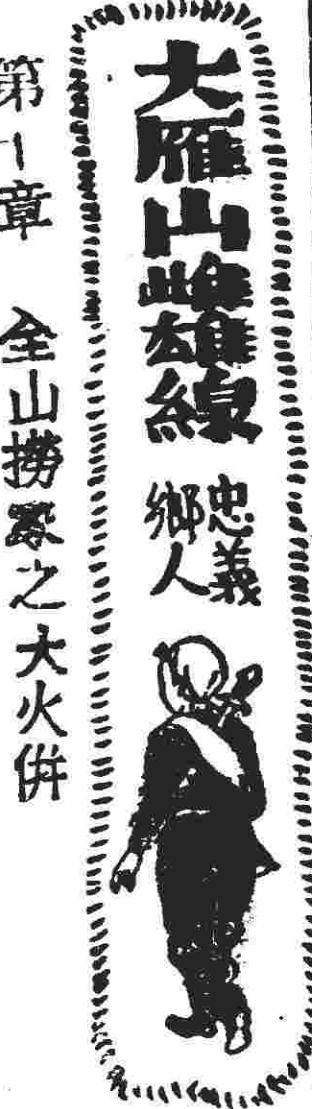 大雁山雌雄線
忠義
鄉人
第一章 全山撈家之大火併